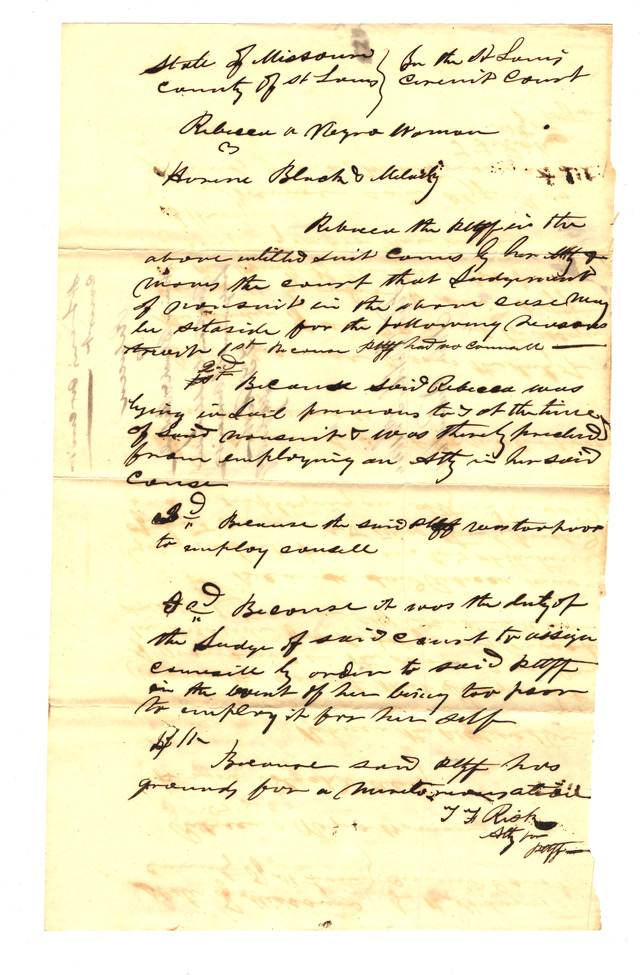 State of Missouri } In the St Louis
County of St Louis } Circuit Court
Rebecca a Negro Woman
vs
Horine Black & Melody
Rebecca the pltff in the
above intitled suit Comes by her Atty &
moves the court that Judgement
of nonsuit in the above case may
be setaside for the following reasons
towit 1st Because pltff had no counsell
2nd Because said Rebecca was
lying in Jail previous to & at the time
of said nonsuit & was thereby preclud
from employing an Atty in her said
cause
3d Because the said pltff was too poor
to employ counsell
Because it was the duty of
the Judge of said court to assign
counsill by order to said pltff
in the event of her being too poor
to employ it for her self
Because said pltff has
grounds for a meritorious action
T F Risk
Atty for
pltff